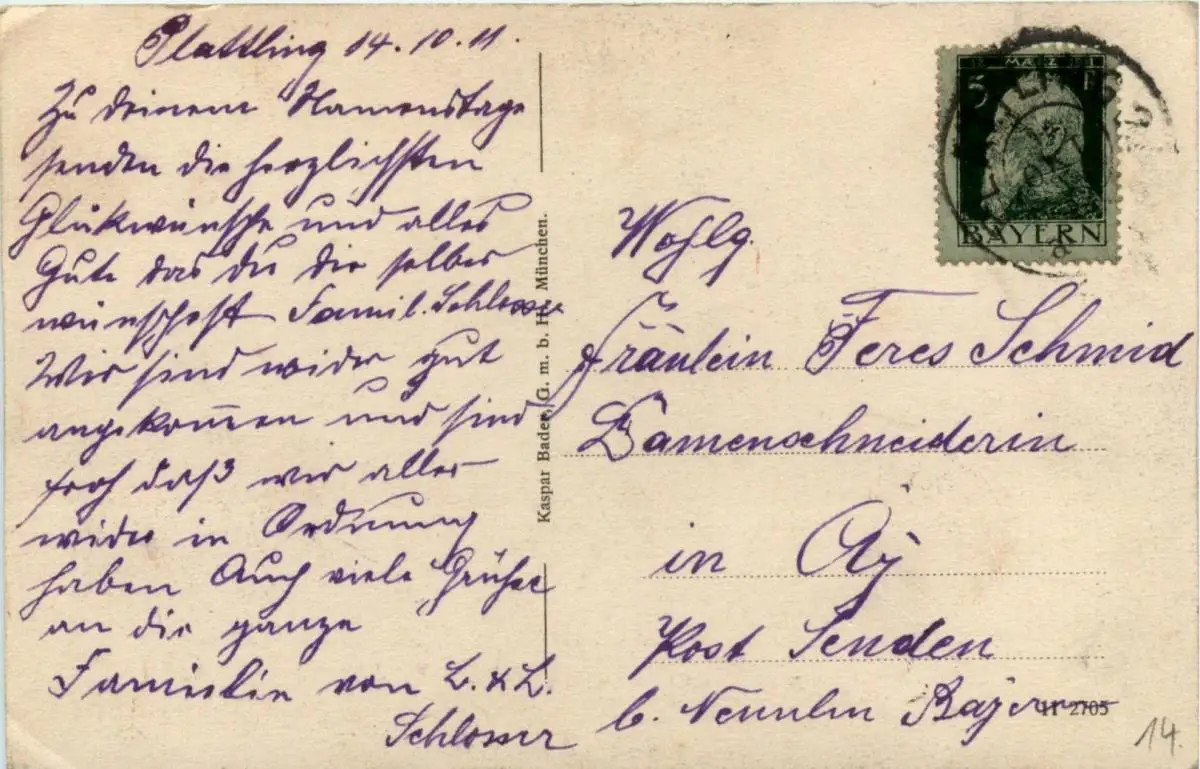 Plattling 14.10.11.
Zu deinem Namenstage
senden die herzlichsten
Glükwünsche und alles
Gute das du dir selber
wünschest Famil. Schlosser
Wir sind wider gut
angekom̄en und sind
froh daß wir alles
wider in Ordnung
haben Auch viele Grüße
an die ganze
Familie von L. & L.
Schlosser
Kaspar Bader, G. m. b. H., München.
5 MÄRZ
BAYERN
Wohlg.
Fräulein Teres Schmid
Damenschneiderin
in Aÿ
Post Senden
b. Neuulm Bayern
11 2705
14.